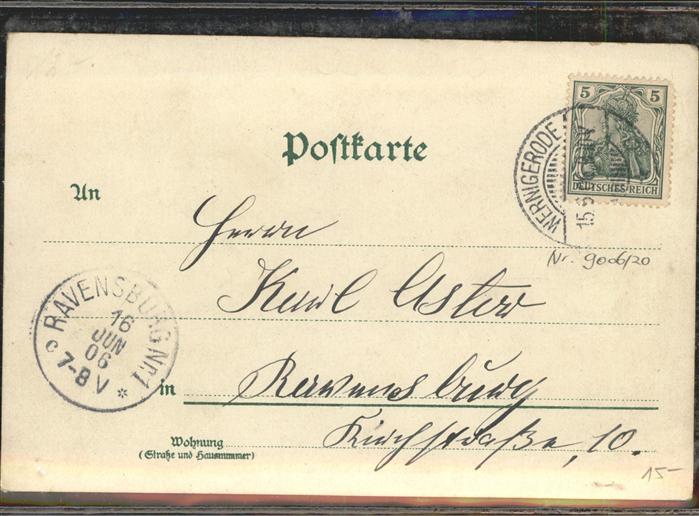 5 5
DEUTSCHES REICH
Postkarte
WERNIGERODE
15.6
An
Herrn
Nr. 9006/20
Karl Aster
RAVENSBURG Nr 1
16
JUN
06
c 7-8 V *
in Ravensburg
Wohnung
(Straße und Hausnummer)
Kirchstraße, 10.
15-